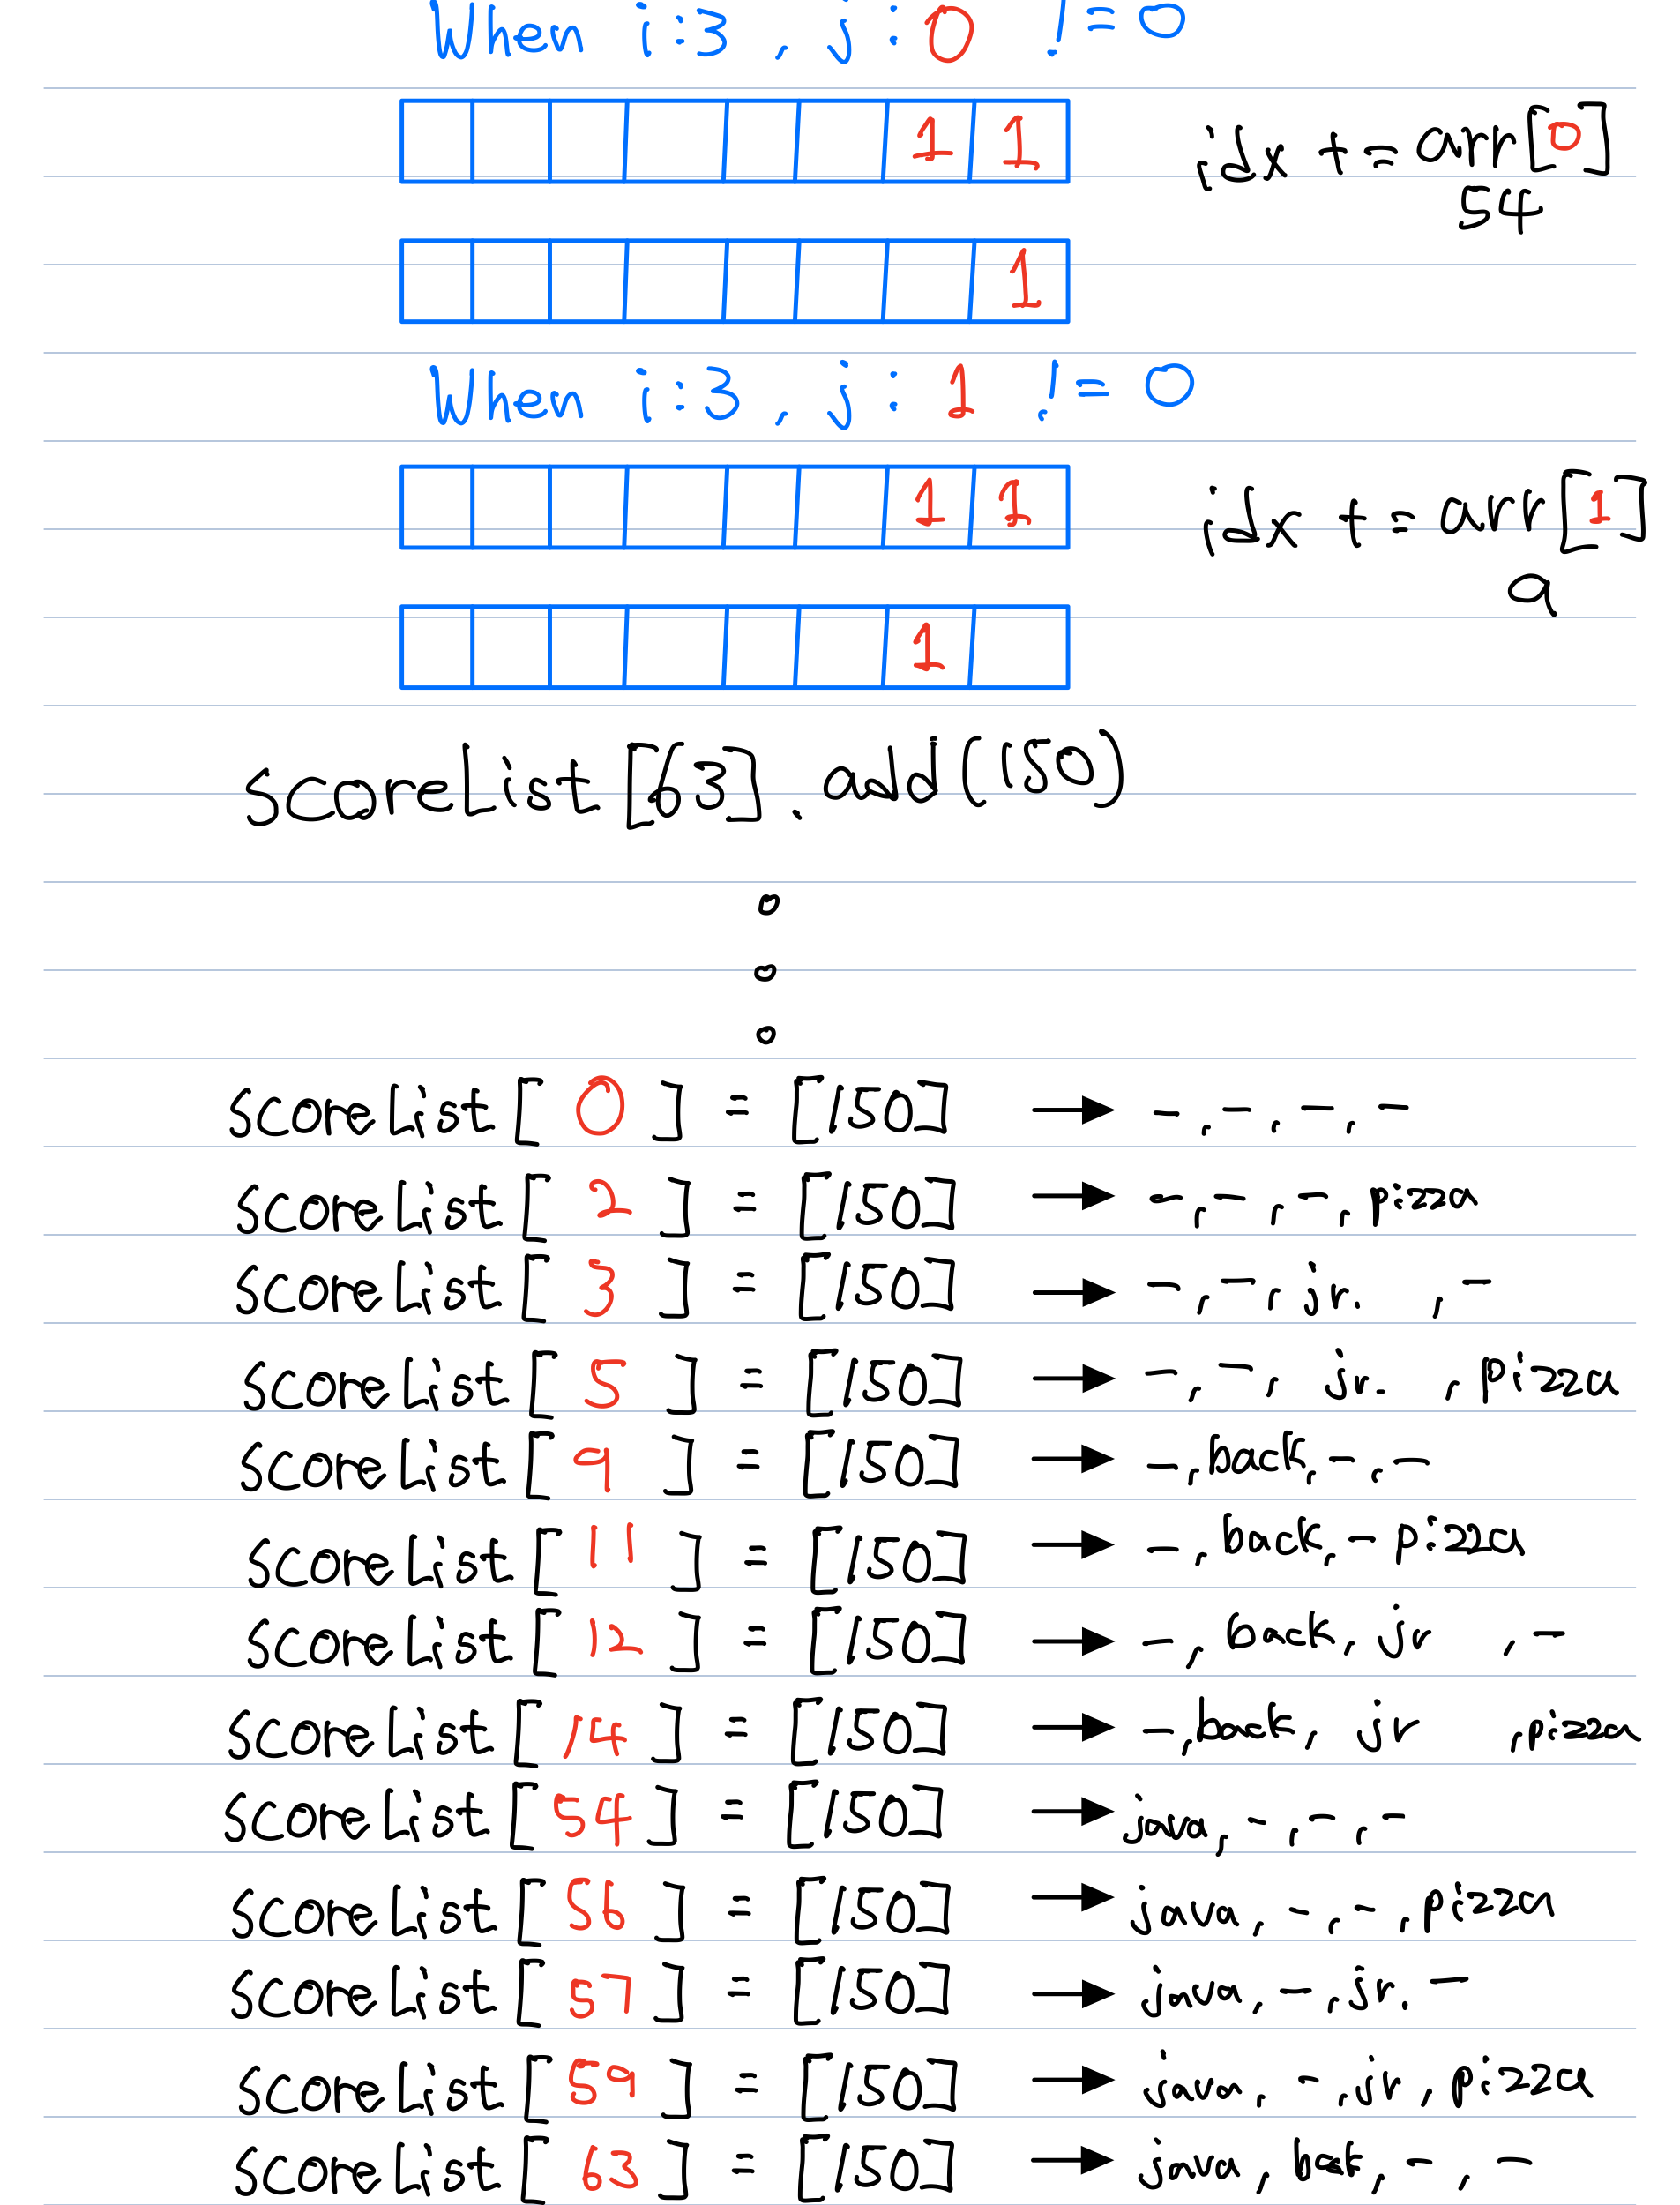 When i:3 , j:0 != 0
1 1 idx += arr[0]
54
1
When i:3 , j:1 != 0
1 1 idx += arr[1]
9
1
scoreList[63].add(150)
scoreList[ 0 ] = [150] → -,-,-,-
scoreList[ 2 ] = [150] → -,-,-,pizza
scoreList[ 3 ] = [150] → -,-,jr. ,-
scoreList[ 5 ] = [150] → -,-, jr. ,pizza
scoreList[ 9 ] = [150] → -,back,-,-
scoreList[ 11 ] = [150] → -,back,-pizza
scoreList[ 12 ] = [150] → -,back,jr ,-
scoreList[ 14 ] = [150] → -,back, jr ,pizza
scoreList[ 54 ] = [150] → java,-,-,-
scoreList[ 56 ] = [150] → java,-,-,pizza
scoreList[ 57 ] = [150] → java,-,jr.-
scoreList[ 59 ] = [150] → java,-,jr,pizza
scoreList[ 63 ] = [150] → java,back,-,-